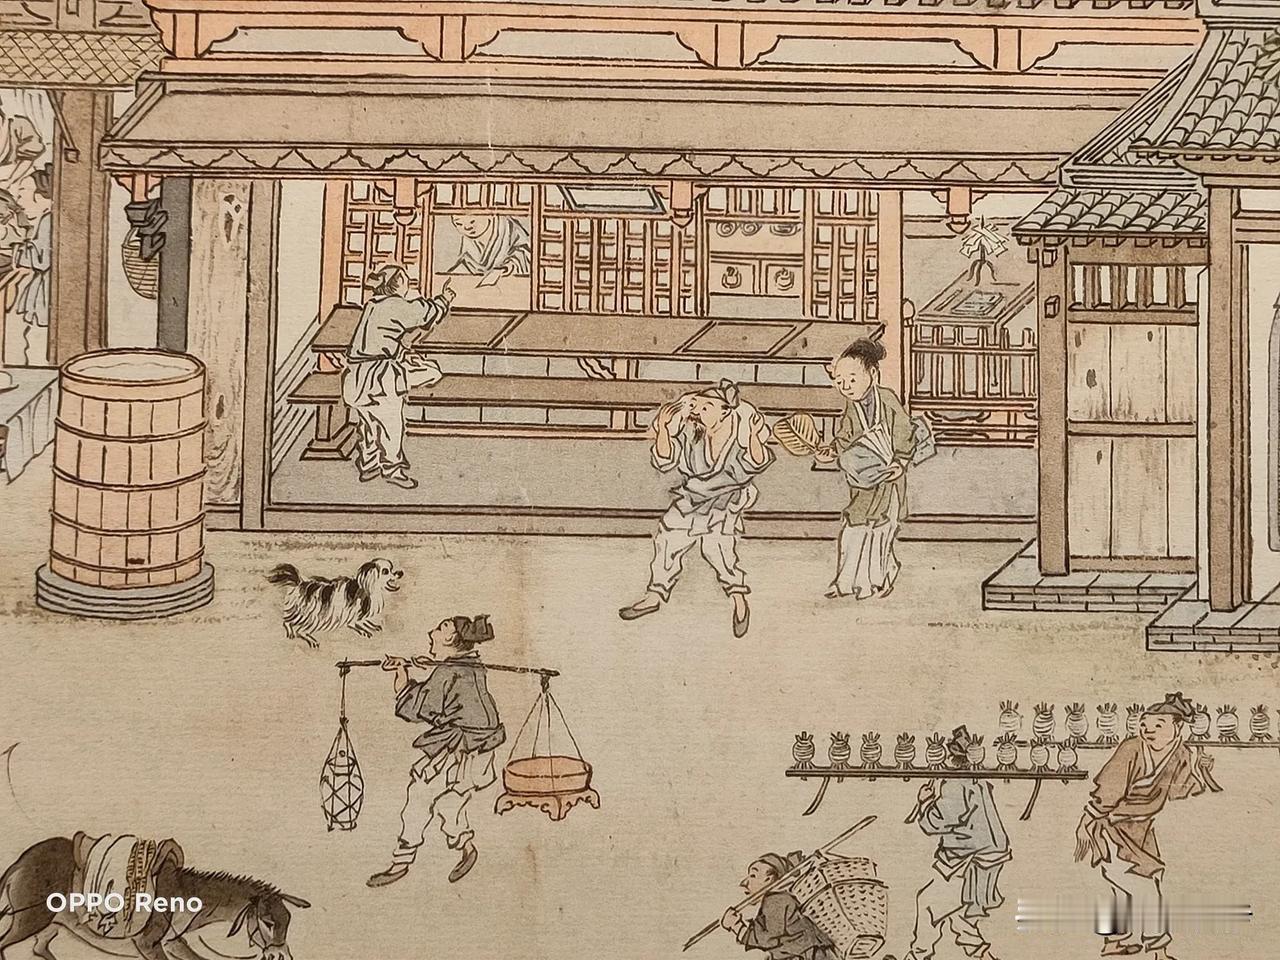 OPPO Reno